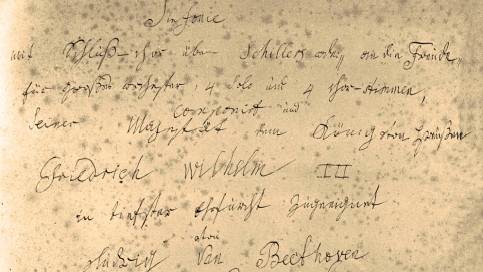 Sinfonie
mit Schluß-chor über Schillers ode: „an die Freude“
für großes orchester, 4 solo und 4 chor-stimmen,
componirt und
Seiner Majestät dem König von Preußen
Friedrich Wilhelm III
in tiefster Ehrfurcht zugeeignet
von
Ludwig van Beethoven